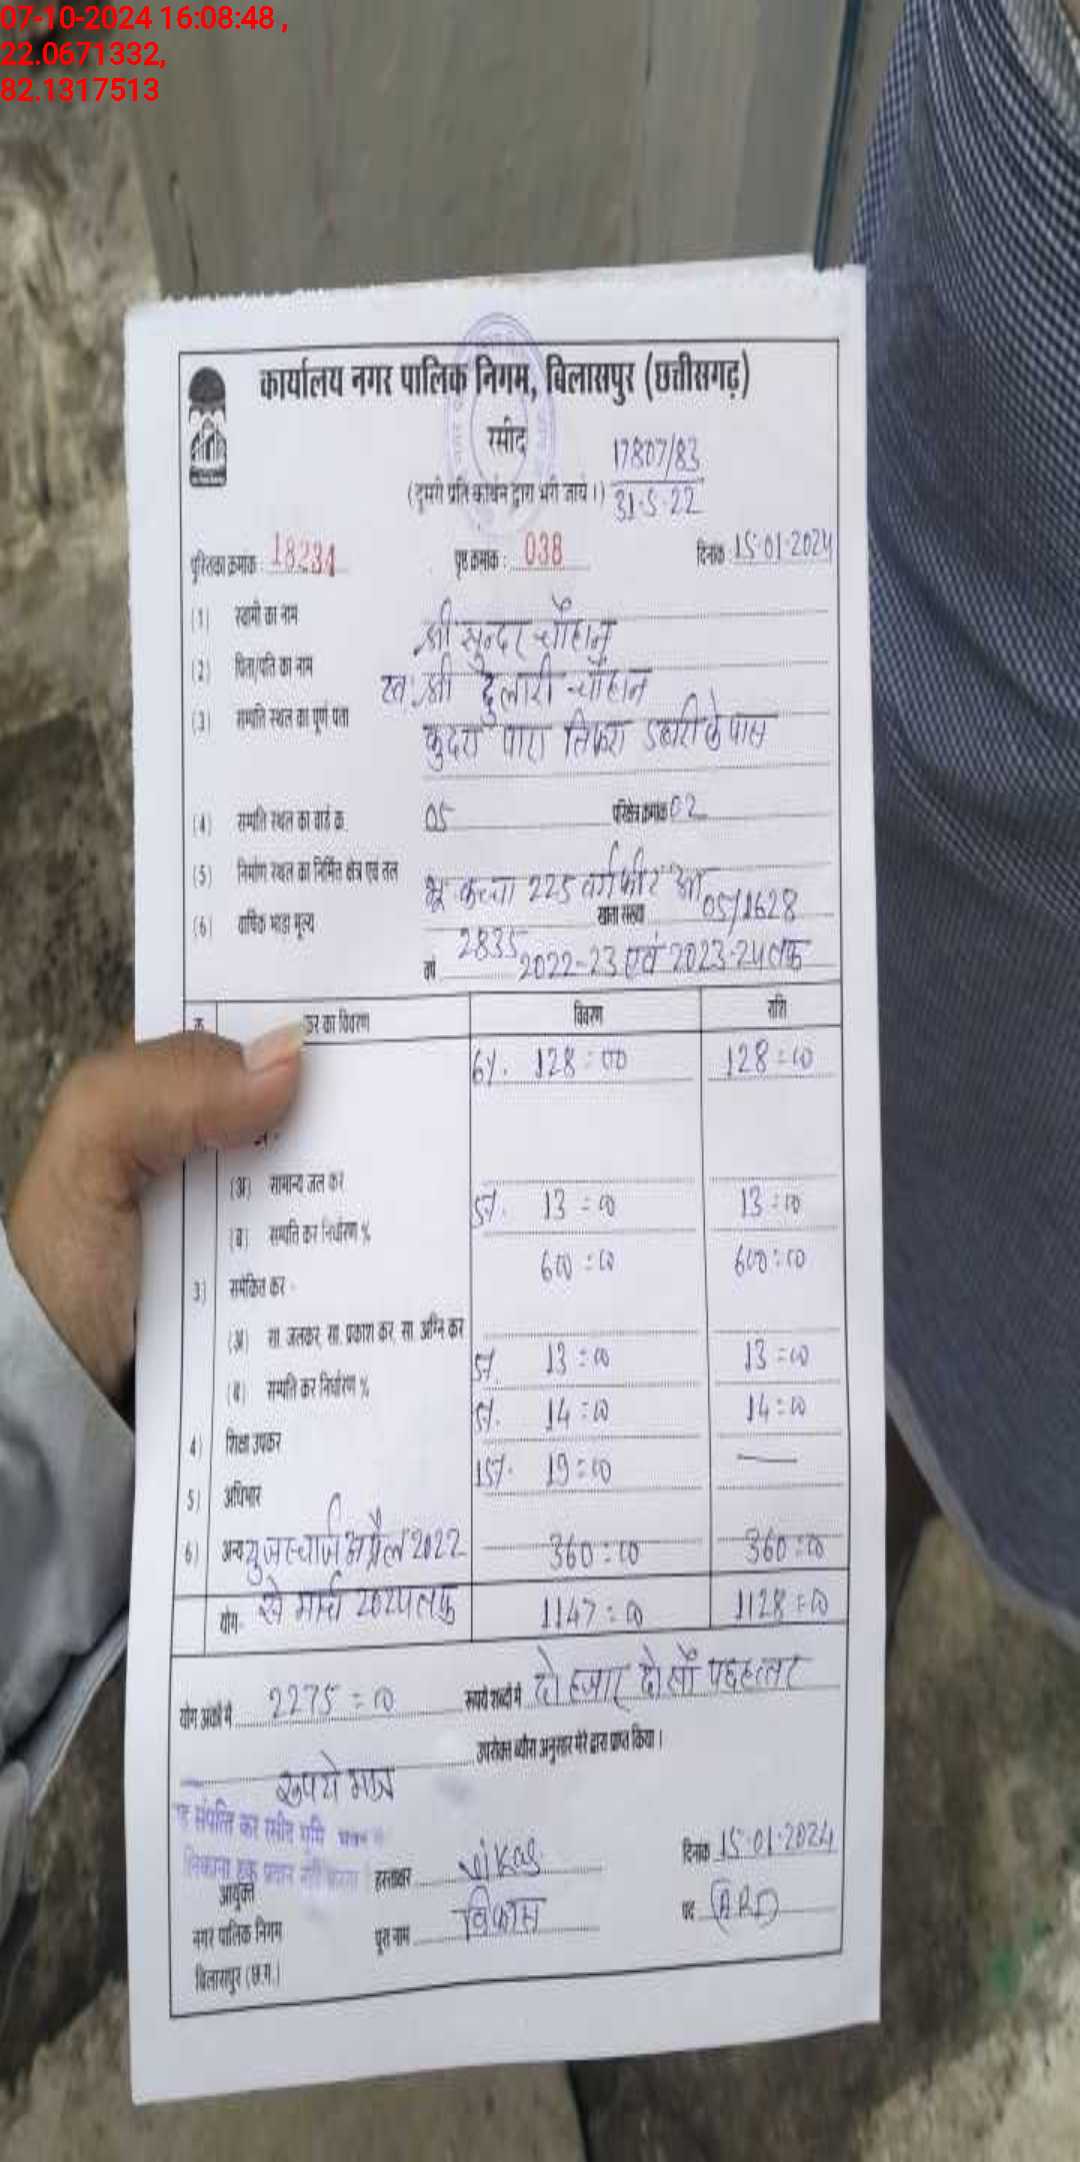 07-10-2024 16:08:48 ,
22.0671332,
82.1317513
कार्यालय नगर पालिक निगम, बिलासपुर (छत्तीसगढ़)
रसीद
17807/83
(दूसरी प्रति कार्बन द्वारा भरी जाये ।) 31-5-22
पुस्तिका क्रमांक : 18234 पृष्ठ क्रमांक : 038 दिनांक : 15-01-2024
(1) स्वामी का नाम श्री सुन्दर चौहान
(2) पिता/पति का नाम स्व. श्री दुलारी चौहान
(3) सम्पत्ति स्थल का पूर्ण पता कुदरा पारा तिफरा डबरी के पास
(4) सम्पत्ति स्थल का वार्ड क्र. 05 परिक्षेत्र क्रमांक 02
(5) निर्माण स्थल का निर्मित क्षेत्र एवं तल भू कच्चा 225 वर्गफीट
(6) वार्षिक भाड़ा मूल्य खाता संख्या 05/1628
वर्ष 2835 2022-23 एवं 2023-24 तक
कर का विवरण विवरण राशि
6%. 128=00 128=00
(अ) सामान्य जल कर
(ब) सम्पत्ति कर निर्धारण % 5%. 13=00 13=00
3) समेकित कर - 600=00 600=00
(अ) सा. जलकर, सा. प्रकाश कर, सा. अग्नि कर
(ब) सम्पत्ति कर निर्धारण % 5%. 13=00 13=00
4) शिक्षा उपकर 5%. 14=00 14=00
5) अधिभार 15%. 19=00 —
6) अन्य यूजर चार्ज अप्रैल 2022 360=00 360=00
योग- से मार्च 2024 तक 1147=00 1128=00
योग अंकों में 2275=00 रूपये शब्दों में दो हजार दो सौ पचहत्तर
रूपये मात्र उपरोक्त ब्यौरा अनुसार मेरे द्वारा प्राप्त किया ।
संपत्ति कर रसीद भूमि भवन
हक प्रदान नहीं करता
आयुक्त हस्ताक्षर vikas दिनांक 15-01-2024
नगर पालिक निगम पूरा नाम विकास पद (ARI)
बिलासपुर (छ.ग.)